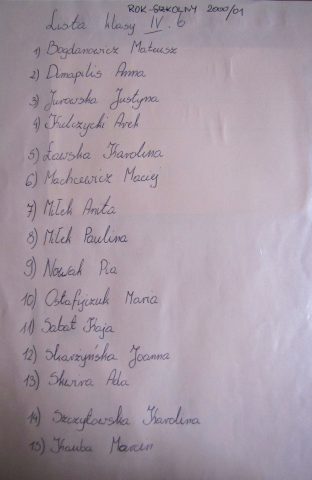 ROK-SZKOLNY 2000/01
Lista klasy IV. b
1) Bogdanowicz Mateusz
2) Dimapilis Anna
3) Jurowska Justyna
4) Kulczycki Arek
5) Ławska Karolina
6) Machcewicz Maciej
7) Miłek Anita
8) Miłek Paulina
9) Nowak Pia
10) Ostafijczuk Maria
11) Sabat Kaja
12) Skarżyńska Joanna
13) Skwira Ada
14) Szczytowska Karolina
15) Kauba Marcin